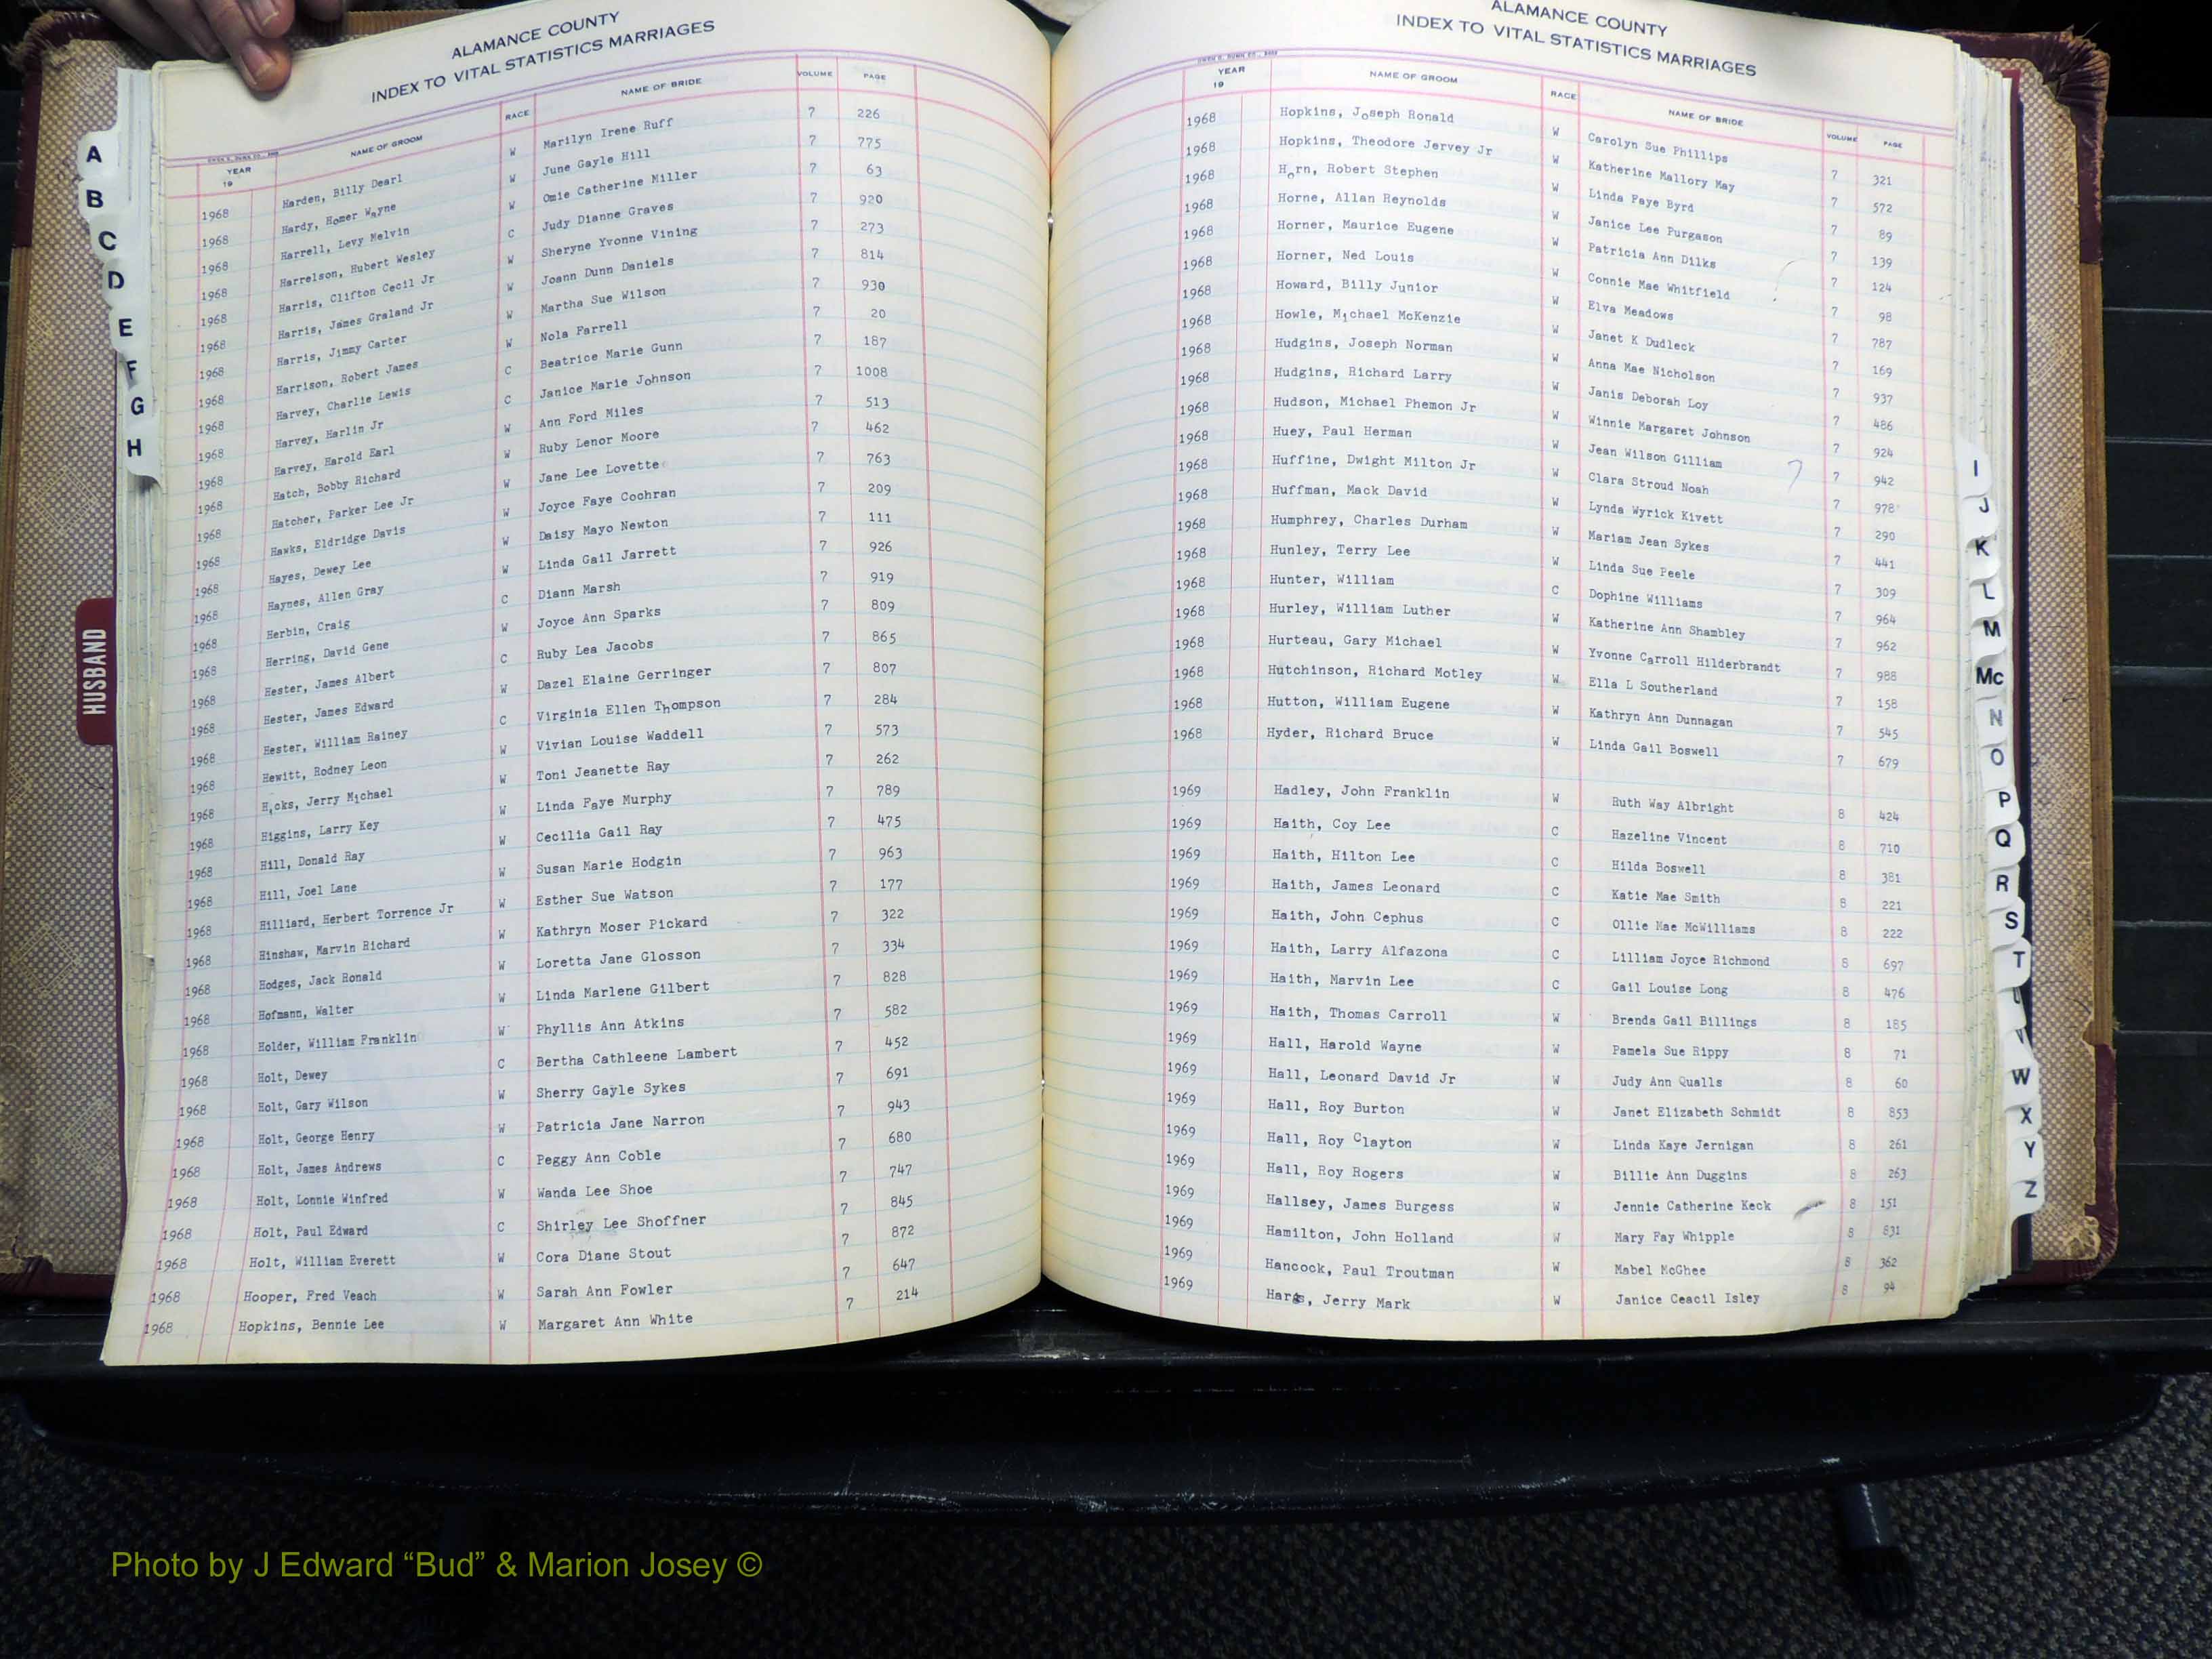 ALAMANCE COUNTY
INDEX TO VITAL STATISTICS MARRIAGES
YEAR 19 NAME OF GROOM RACE NAME OF BRIDE VOLUME PAGE
1968 Harden, Billy Dearl W Marilyn Irene Ruff 7 226
1968 Hardy, Homer Wayne W June Gayle Hill 7 775
1968 Harrell, Levy Melvin W Omie Catherine Miller 7 63
1968 Harrelson, Hubert Wesley C Judy Dianne Graves 7 920
1968 Harris, Clifton Cecil Jr W Sheryne Yvonne Vining 7 273
1968 Harris, James Graland Jr W Joann Dunn Daniels 7 814
1968 Harris, Jimmy Carter W Martha Sue Wilson 7 930
1968 Harrison, Robert James W Nola Farrell 7 20
1968 Harvey, Charlie Lewis C Beatrice Marie Gunn 7 187
1968 Harvey, Harlin Jr C Janice Marie Johnson 7 1008
1968 Harvey, Harold Earl W Ann Ford Miles 7 513
1968 Hatch, Bobby Richard W Ruby Lenor Moore 7 462
1968 Hatcher, Parker Lee Jr W Jane Lee Lovette 7 763
1968 Hawks, Eldridge Davis W Joyce Faye Cochran 7 209
1968 Hayes, Dewey Lee W Daisy Mayo Newton 7 111
1968 Haynes, Allen Gray W Linda Gail Jarrett 7 926
1968 Herbin, Craig C Diann Marsh 7 919
1968 Herring, David Gene W Joyce Ann Sparks 7 809
1968 Hester, James Albert C Ruby Lea Jacobs 7 865
1968 Hester, James Edward W Dazel Elaine Gerringer 7 807
1968 Hester, William Rainey C Virginia Ellen Thompson 7 284
1968 Hewitt, Rodney Leon W Vivian Louise Waddell 7 573
1968 Hicks, Jerry Michael W Toni Jeanette Ray 7 262
1968 Higgins, Larry Key W Linda Faye Murphy 7 789
1968 Hill, Donald Ray W Cecilia Gail Ray 7 475
1968 Hill, Joel Lane W Susan Marie Hodgin 7 963
1968 Hilliard, Herbert Torrence Jr W Esther Sue Watson 7 177
1968 Hinshaw, Marvin Richard W Kathryn Moser Pickard 7 322
1968 Hodges, Jack Ronald W Loretta Jane Glosson 7 334
1968 Hofmann, Walter W Linda Marlene Gilbert 7 828
1968 Holder, William Franklin W Phyllis Ann Atkins 7 582
1968 Holt, Dewey C Bertha Cathleene Lambert 7 452
1968 Holt, Gary Wilson W Sherry Gayle Sykes 7 691
1968 Holt, George Henry W Patricia Jane Narron 7 943
1968 Holt, James Andrews C Peggy Ann Coble 7 680
1968 Holt, Lonnie Winfred W Wanda Lee Shoe 7 747
1968 Holt, Paul Edward C Shirley Lee Shoffner 7 845
1968 Holt, William Everett W Cora Diane Stout 7 872
1968 Hooper, Fred Veach W Sarah Ann Fowler 7 647
1968 Hopkins, Bennie Lee W Margaret Ann White 7 214
A
B
C
D
E
F
G
H
HUSBAND
ALAMANCE COUNTY
INDEX TO VITAL STATISTICS MARRIAGES
YEAR 19 NAME OF GROOM RACE NAME OF BRIDE VOLUME PAGE
1968 Hopkins, Joseph Ronald W Carolyn Sue Phillips 7 321
1968 Hopkins, Theodore Jervey Jr W Katherine Mallory May 7 572
1968 Horn, Robert Stephen W Linda Faye Byrd 7 89
1968 Horne, Allan Reynolds W Janice Lee Purgason 7 139
1968 Horner, Maurice Eugene W Patricia Ann Dilks 7 124
1968 Horner, Ned Louis W Connie Mae Whitfield 7 98
1968 Howard, Billy Junior W Elva Meadows 7 787
1968 Howle, Michael McKenzie W Janet K Dudleck 7 169
1968 Hudgins, Joseph Norman W Anna Mae Nicholson 7 937
1968 Hudgins, Richard Larry W Janis Deborah Loy 7 486
1968 Hudson, Michael Phemon Jr W Winnie Margaret Johnson 7 924
1968 Huey, Paul Herman W Jean Wilson Gilliam 7 942
1968 Huffine, Dwight Milton Jr W Clara Stroud Noah 7 978
1968 Huffman, Mack David W Lynda Wyrick Kivett 7 290
1968 Humphrey, Charles Durham W Mariam Jean Sykes 7 441
1968 Hunley, Terry Lee W Linda Sue Peele 7 309
1968 Hunter, William C Dophine Williams 7 964
1968 Hurley, William Luther W Katherine Ann Shambley 7 962
1968 Hurteau, Gary Michael W Yvonne Carroll Hilderbrandt 7 988
1968 Hutchinson, Richard Motley W Ella L Southerland 7 158
1968 Hutton, William Eugene W Kathryn Ann Dunnagan 7 545
1968 Hyder, Richard Bruce W Linda Gail Boswell 7 679
1969 Hadley, John Franklin W Ruth Way Albright 8 424
1969 Haith, Coy Lee C Hazeline Vincent 8 710
1969 Haith, Hilton Lee C Hilda Boswell 8 381
1969 Haith, James Leonard C Katie Mae Smith 8 221
1969 Haith, John Cephus C Ollie Mae McWilliams 8 222
1969 Haith, Larry Alfazona C Lilliam Joyce Richmond 8 697
1969 Haith, Marvin Lee C Gail Louise Long 8 476
1969 Haith, Thomas Carroll W Brenda Gail Billings 8 185
1969 Hall, Harold Wayne W Pamela Sue Rippy 8 71
1969 Hall, Leonard David Jr W Judy Ann Qualls 8 60
1969 Hall, Roy Burton W Janet Elizabeth Schmidt 8 853
1969 Hall, Roy Clayton W Linda Kaye Jernigan 8 261
1969 Hall, Roy Rogers W Billie Ann Duggins 8 263
1969 Hallsey, James Burgess W Jennie Catherine Keck 8 151
1969 Hamilton, John Holland W Mary Fay Whipple 8 831
1969 Hancock, Paul Troutman W Mabel McGhee 8 362
1969 Jerry Mark W Janice Ceacil Isley 8 94
I
J
K
L
M
Mc
N
O
P
Q
R
S
T
W
X
Y
Z
Photo by J Edward “Bud” & Marion Josey ©